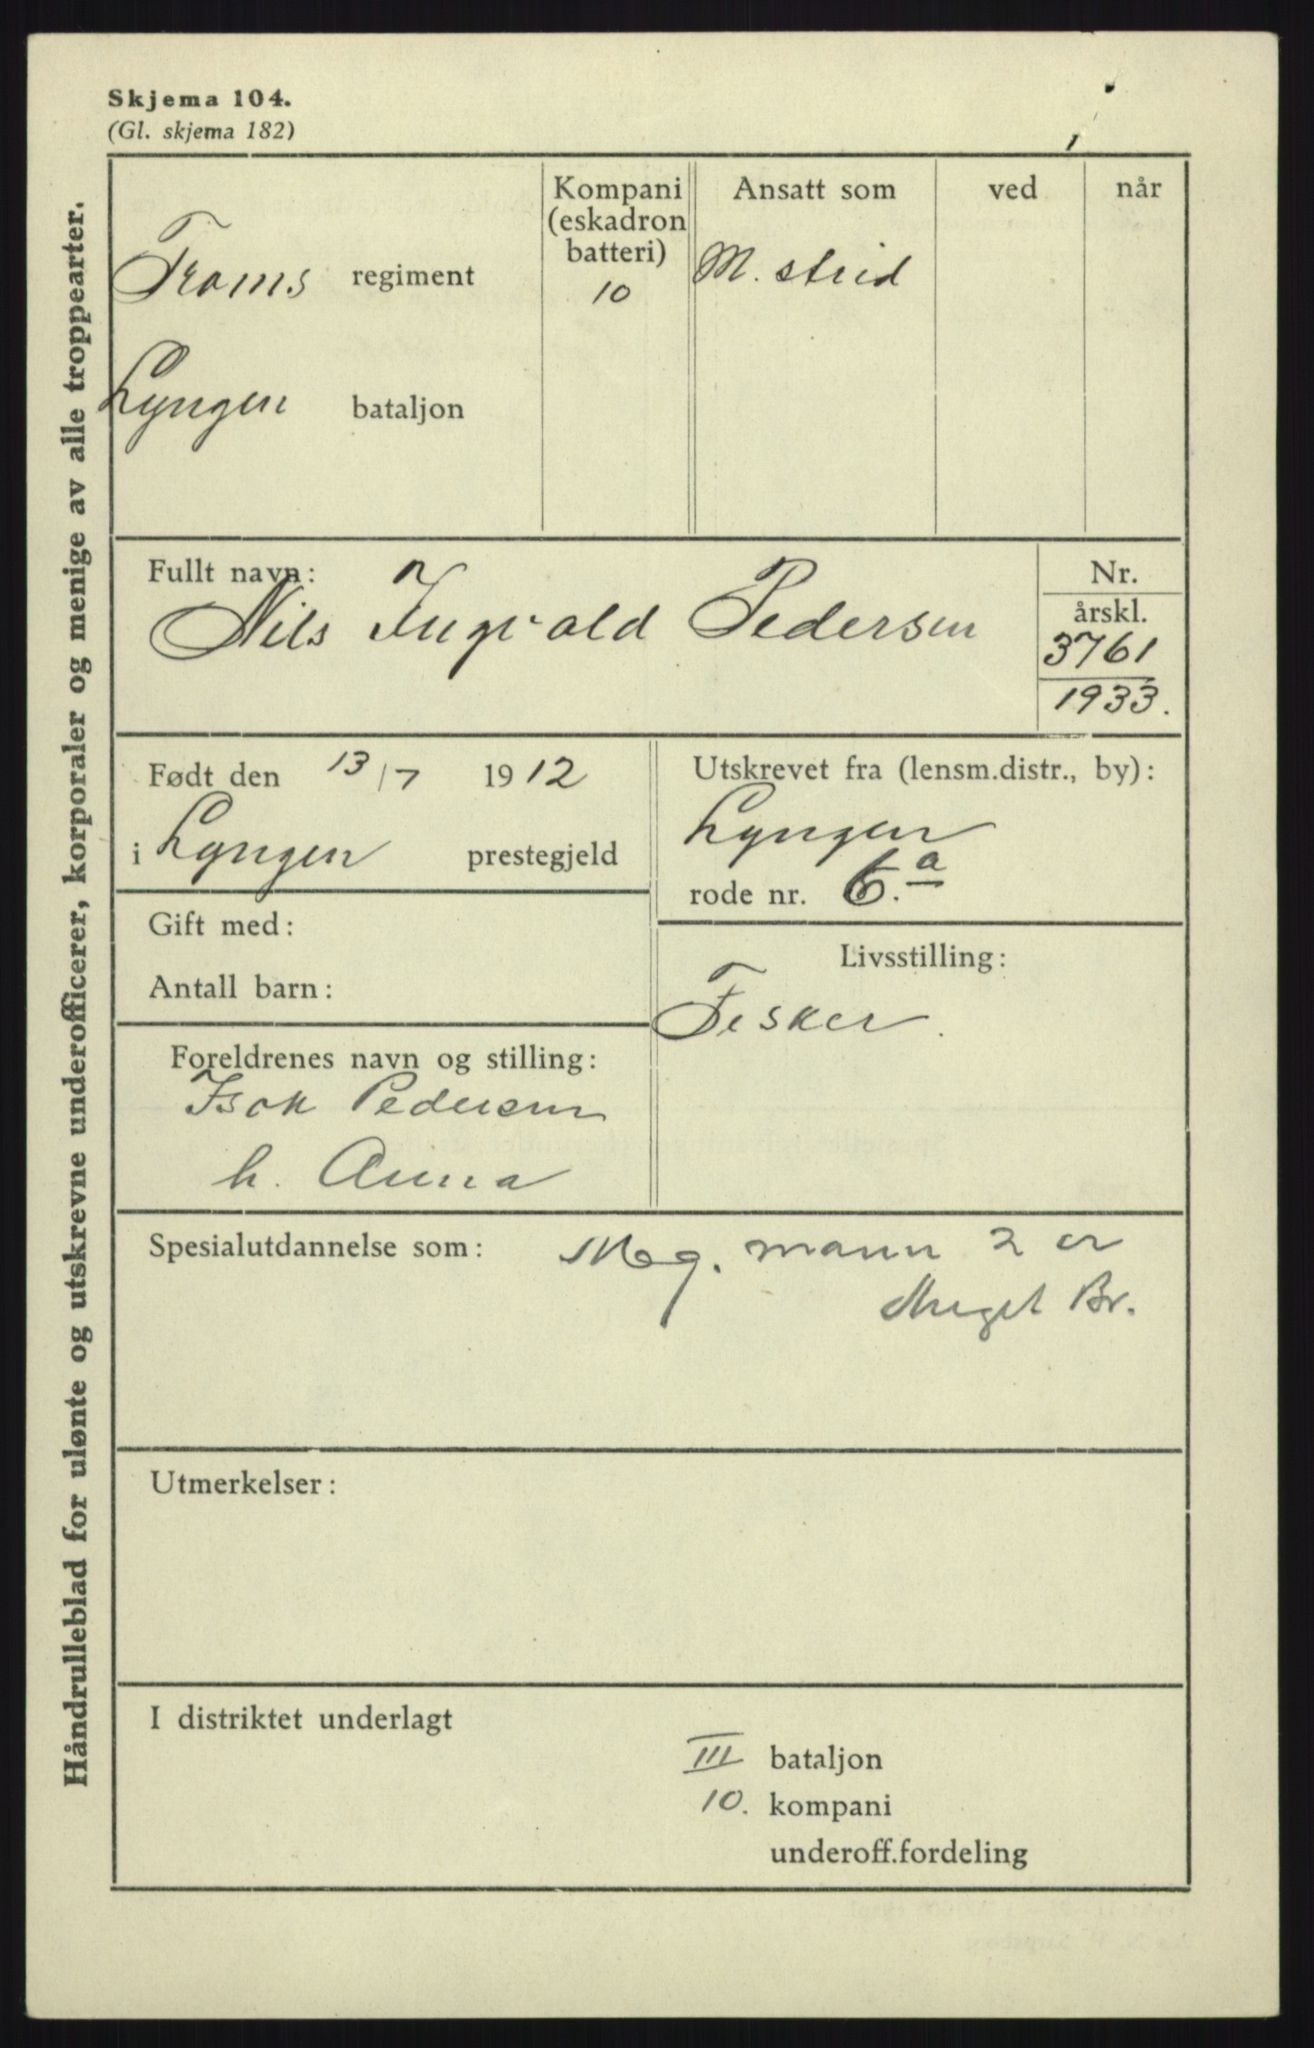 Skjema 104.
(Gl. skjema 182)
Håndrulleblad for ulønte og utskrevne underofficerer, korporaler og menige av alle troppearter.
Troms regiment
Lyngen bataljon
Kompani
(eskadron
batteri)
10
Ansatt som
M. strid
ved
når
Fullt navn:
Nils Ingvald Pedersen
Nr.
årskl.
3761
1933.
Født den 13/7 1912
i Lyngen prestegjeld
Utskrevet fra (lensm.distr., by):
Lyngen
rode nr. 6.a
Gift med:
Antall barn:
Livsstilling:
Fisker.
Foreldrenes navn og stilling:
Isak Pedersen
h. Anna
Spesialutdannelse som: Mg. mann 2 er
Meget Br.
Utmerkelser:
I distriktet underlagt
III bataljon
10. kompani
underoff.fordeling